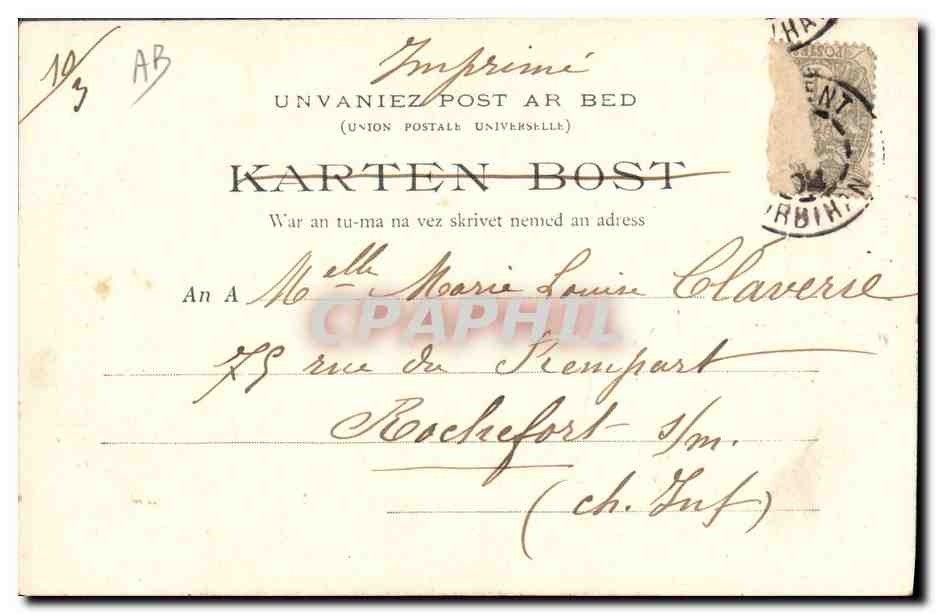 10/3 AB
Imprimé
UNVANIEZ POST AR BED
(UNION POSTALE UNIVERSELLE)
KARTEN BOST
War an tu-ma na vez skrivet nemed an adress
POSTES
NT
04
RBIHAN
An A Melle Marie Louise Claverie
CPAPHIL
75 rue du Rempart
Rochefort s/m.
(ch. Inf)